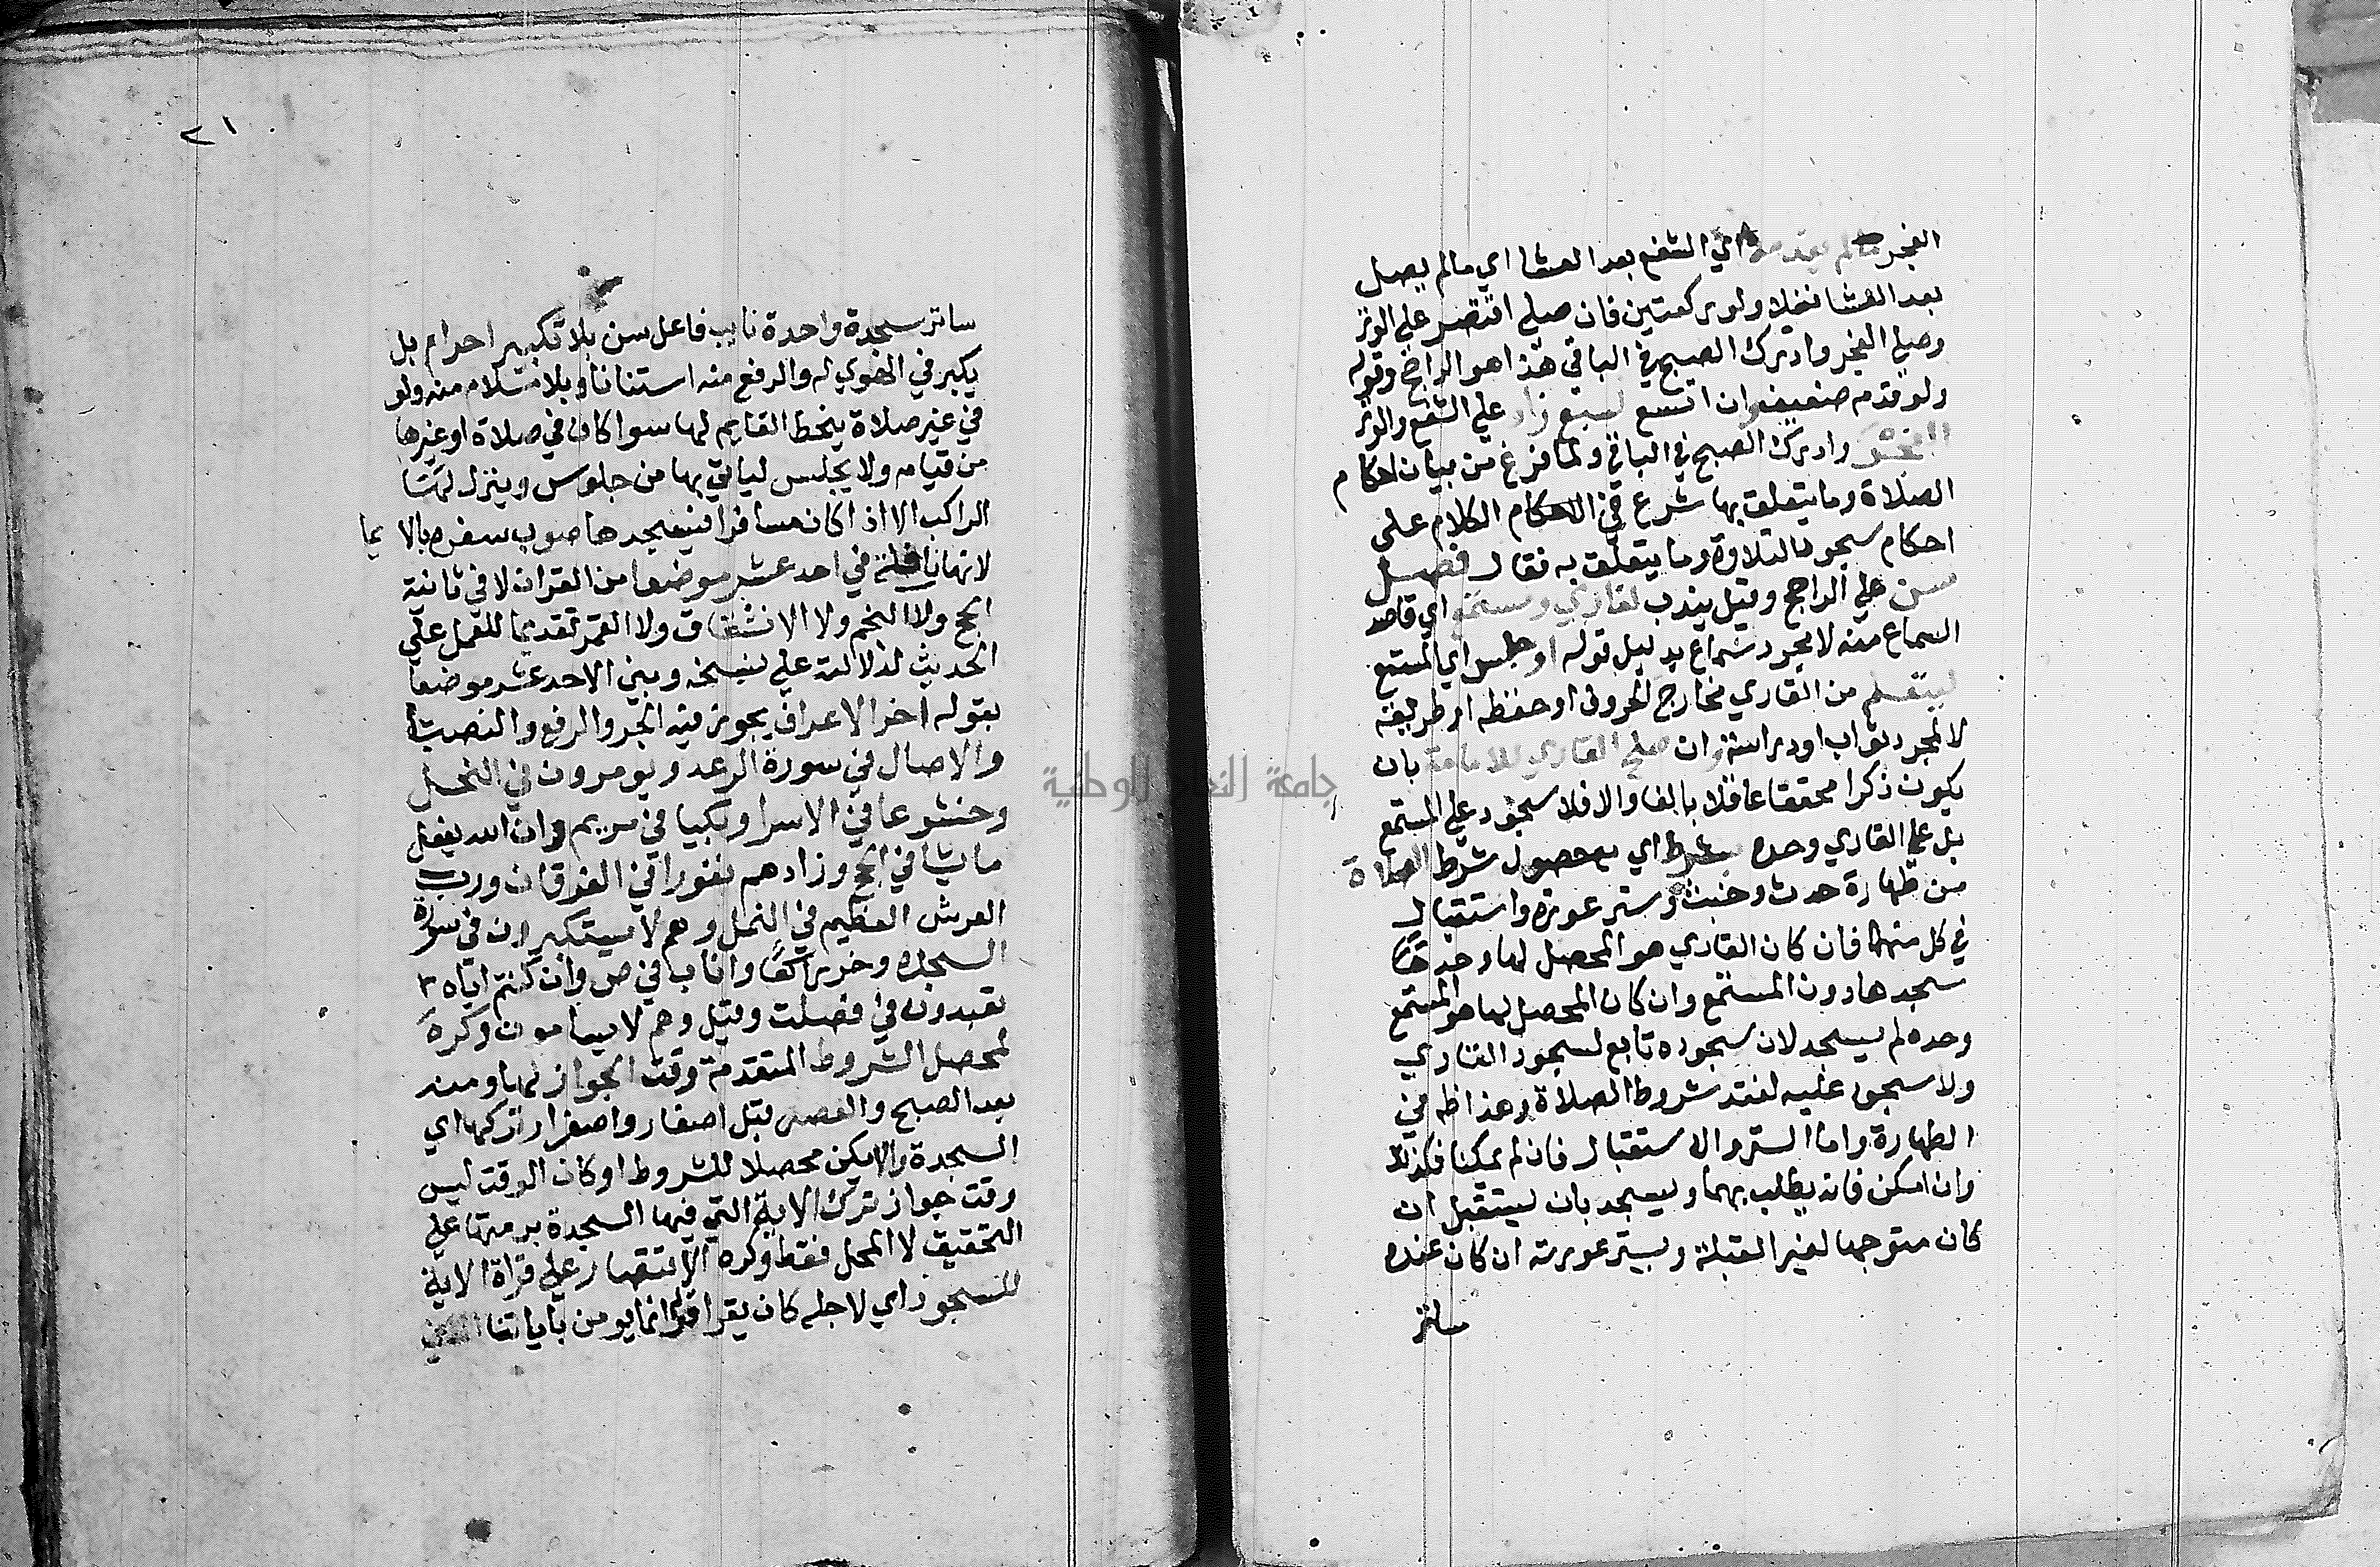 الفجر مالم يقدمه اي الشفع بعد العشا اي مالم يصل
بعد العشا نفلا ولو ركعتين فان صلى اقتصر علي الوتر
وصلي الفجر وادرك الصبح في الباقي هذا هو الراجح وقوله
ولو قدم ضعيف وان اتسع لسبع زاد علي الشفع والوتر
الفجر وادرك الصبح في الباقي ولما فرغ من بيان احكام
الصلاة وما يتعلق بها شرع في الكلام على
احكام سجود التلاوة وما يتعلق به فقال فصل
سن علي الراجح وقيل يندب لقاري ومستمع اي قاصد
السماع منه لا مجرد سماع بدليل قوله او جلس اي المستمع
ليتعلم من القاري مخارج الحروف او حفظه او طريقته
لا لمجرد ثواب او دراسة وان صلح القاري للامامة بان
يكون ذكرا محققا عاقلا بالغا والا فلا سجود علي المستمع
بل علي القاري وحده بشرط اي بحصول شرط الصلاة
من طهارة حدث وخبث وستر عورة واستقبال
في كل منهما فان كان القاري هو المحصل لها وحده
سجدها دون المستمع وان كان المحصل لها هو المستمع
وحده لم يسجد لان سجوده تابع لسجود القاري
ولا سجود عليه لفقد شروط الصلاة وهذا ظه في
الطهارة واما الستر والاستقبال فان لم يمكنا فكذلك
وان امكن فانه يطلب بهما ويسجد بان يستقبل ان
كان متوجها لغير القبلة ويستر عورته ان كان عنده
ساتر
٢١
ساتر سجدة واحدة نايب فاعل سن بلا تكبير احرام بل
يكبر في الهوي له والرفع منه استنانا وبلا سلام منه ولو
في غير صلاة ينحط القايم لها سوا كان في صلاة او غيرها
من قيامه ولا يجلس لياتي بها من جلوس وينزل لها
الراكب الا اذا كان مسافرا فيسجدها صوب سفره بالايما
لانها نافلة في احد عشر موضعا من القران لا في ثانية
الحج ولا النجم ولا الانشقاق ولا القمر تقديما للعمل علي
الحديث لدلالته علي نسخه وبين الاحد عشر موضعا
بقوله اخر الاعراف يجوز فيه الجر والرفع والنصب
والاصال في سورة الرعد ويومرون في النحل
وخشوعا في الاسرا وبكيا في مريم وان الله يفعل
ما يشا في الحج وزادهم نفورا في الفرقان ورب
العرش العظيم في النمل وهم لا يستكبرون في سورة
السجدة وخر راكعا واناب في ص وان كنتم اياه
تعبدون في فصلت وقيل وهم لا يسامون وكره
لمحصل الشروط المتقدمة وقت الجواز لها ومنه
بعد الصبح والعصر قبل اصفار واصفرار تركها اي
السجدة والا يكن محصلا للشروط او كان الوقت ليس
وقت جواز ترك الاية التي فيها السجدة برمتها علي
التحقيق لا المحل فقط وكره الاقتصار علي قراة الاية
للسجود اي لاجله كان يقرا قوله انما يومن باياتنا الذين
جامعة النجاح الوطنية